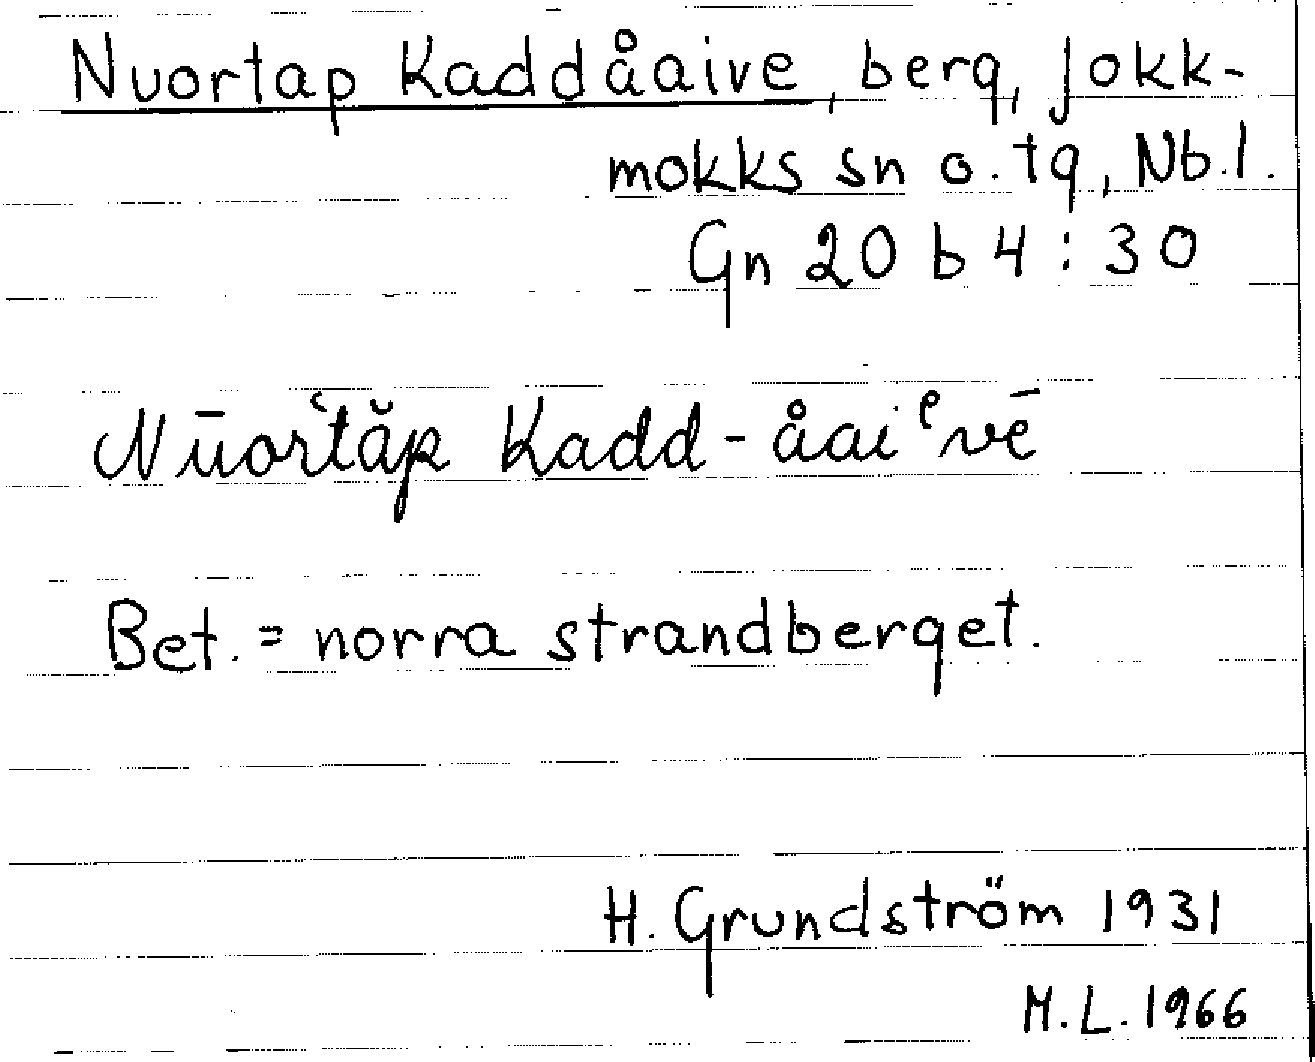 Nuortap Kaddåaive, berg, Jokk-
mokks sn o. tg, Nb.l.
Gn 20 b 4 : 30
Nūorʿtăp Kadd-åaiᵉvē
Bet. = norra strandberget.
H. Grundström 1931
M.L. 1966